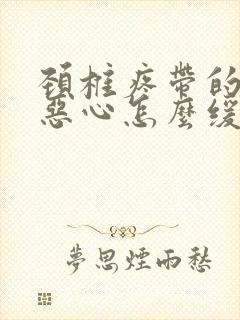 頚椎疼帶的
惡心怎麼缓
夢思煙雨愁